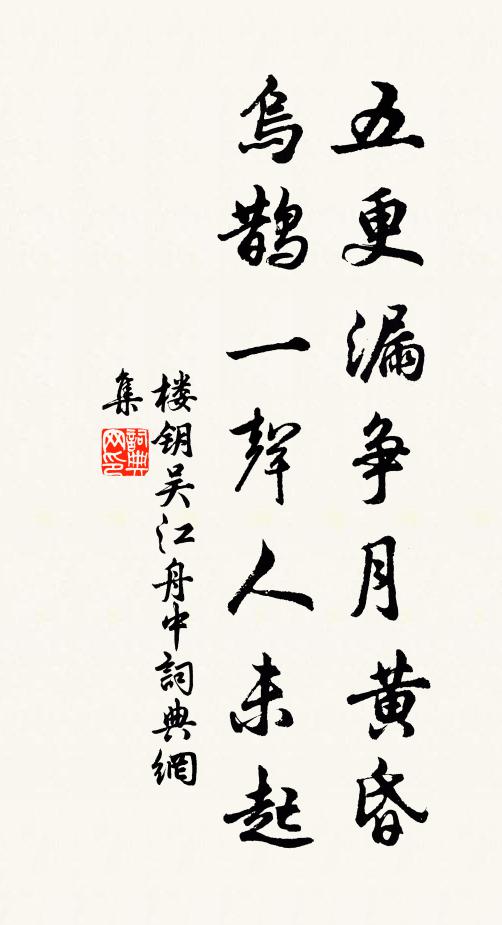 五更漏争月黄昏
烏鵲一聲人未起
楼钥吴江舟中詞典網
集
詞典
网印